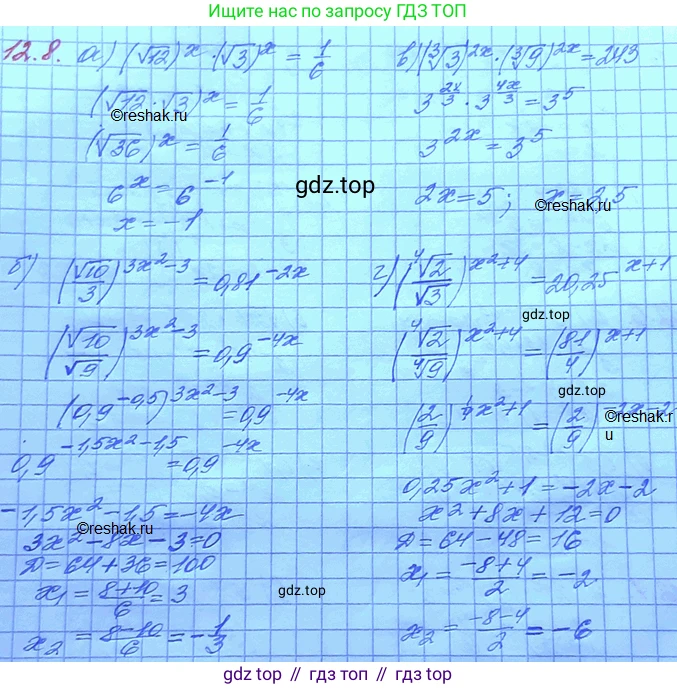 Ищите нас по запросу ГДЗ ТОП
12.8. а) (√12)^x · (√3)^x = 1/6
(√12 · √3)^x = 1/6
©reshak.ru
(√36)^x = 1/6
6^x = 6^-1
x = -1
в) (∛3)^2x · (∛9)^2x = 243
3^(2x/3) · 3^(4x/3) = 3^5
3^2x = 3^5
gdz.top
2x = 5; x = 2,5
©reshak.ru
б) (√10/3)^(3x²-3) = 0,81^-2x
(√10/√9)^(3x²-3) = 0,9^-4x
(0,9^-0,5)^(3x²-3) = 0,9^-4x
0,9^(-1,5x²-1,5) = 0,9^-4x
-1,5x²-1,5 = -4x
©reshak.ru
3x²-8x-3=0
Д=64+36=100
x₁ = (8+10)/6 = 3
x₂ = (8-10)/6 = -1/3
г) (⁴√2/√3)^(x²+4) = 20,25^(x+1)
gdz.top
(⁴√2/⁴√9)^(x²+4) = (81/4)^(x+1)
gdz.top
(2/9)^(¼x²+1) = (2/9)^(-2x-2)
©reshak.ru
0,25x²+1=-2x-2
x²+8x+12=0
Д=64-48=16
x₁ = (-8+4)/2 = -2
gdz.top
x₂ = (-8-4)/2 = -6
gdz.top // гдз.топ // гдз топ